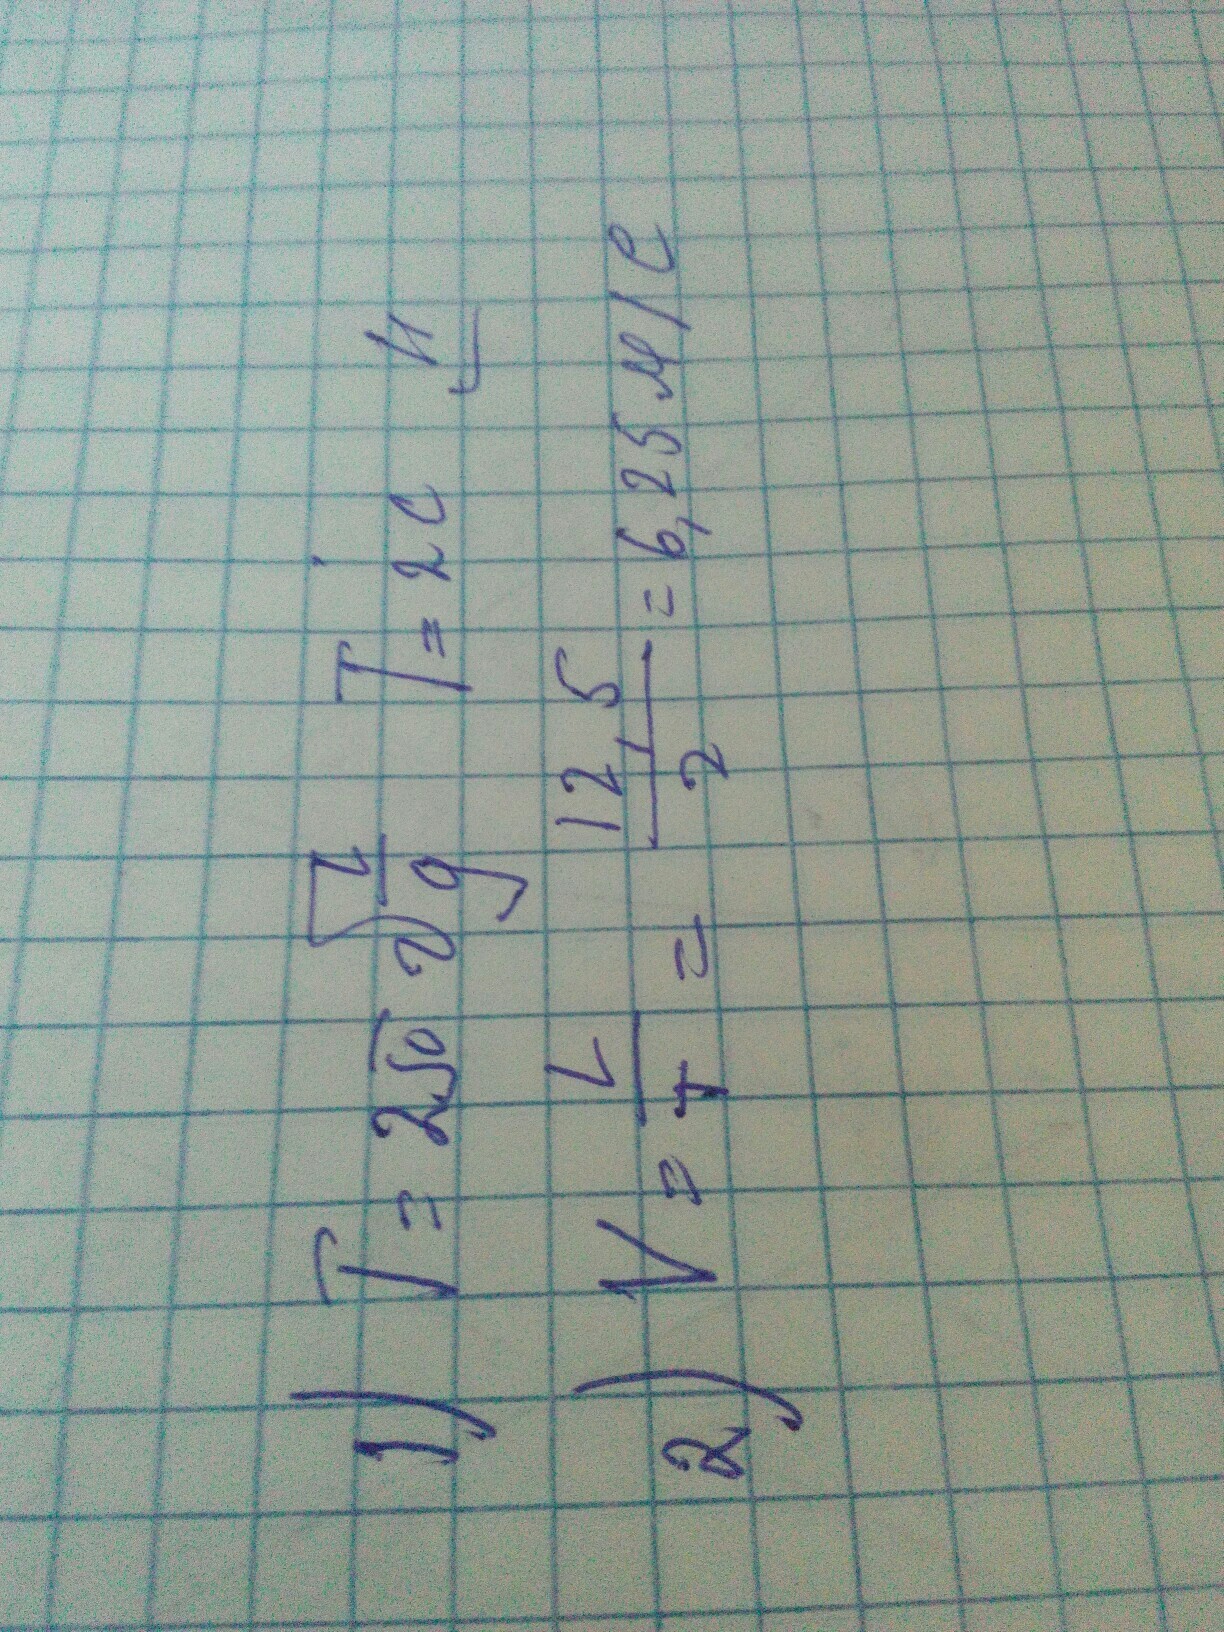 1) T = 2π √(l/g) T = 2 с
2) V = L/T = 12,5/2 = 6,25 м/с